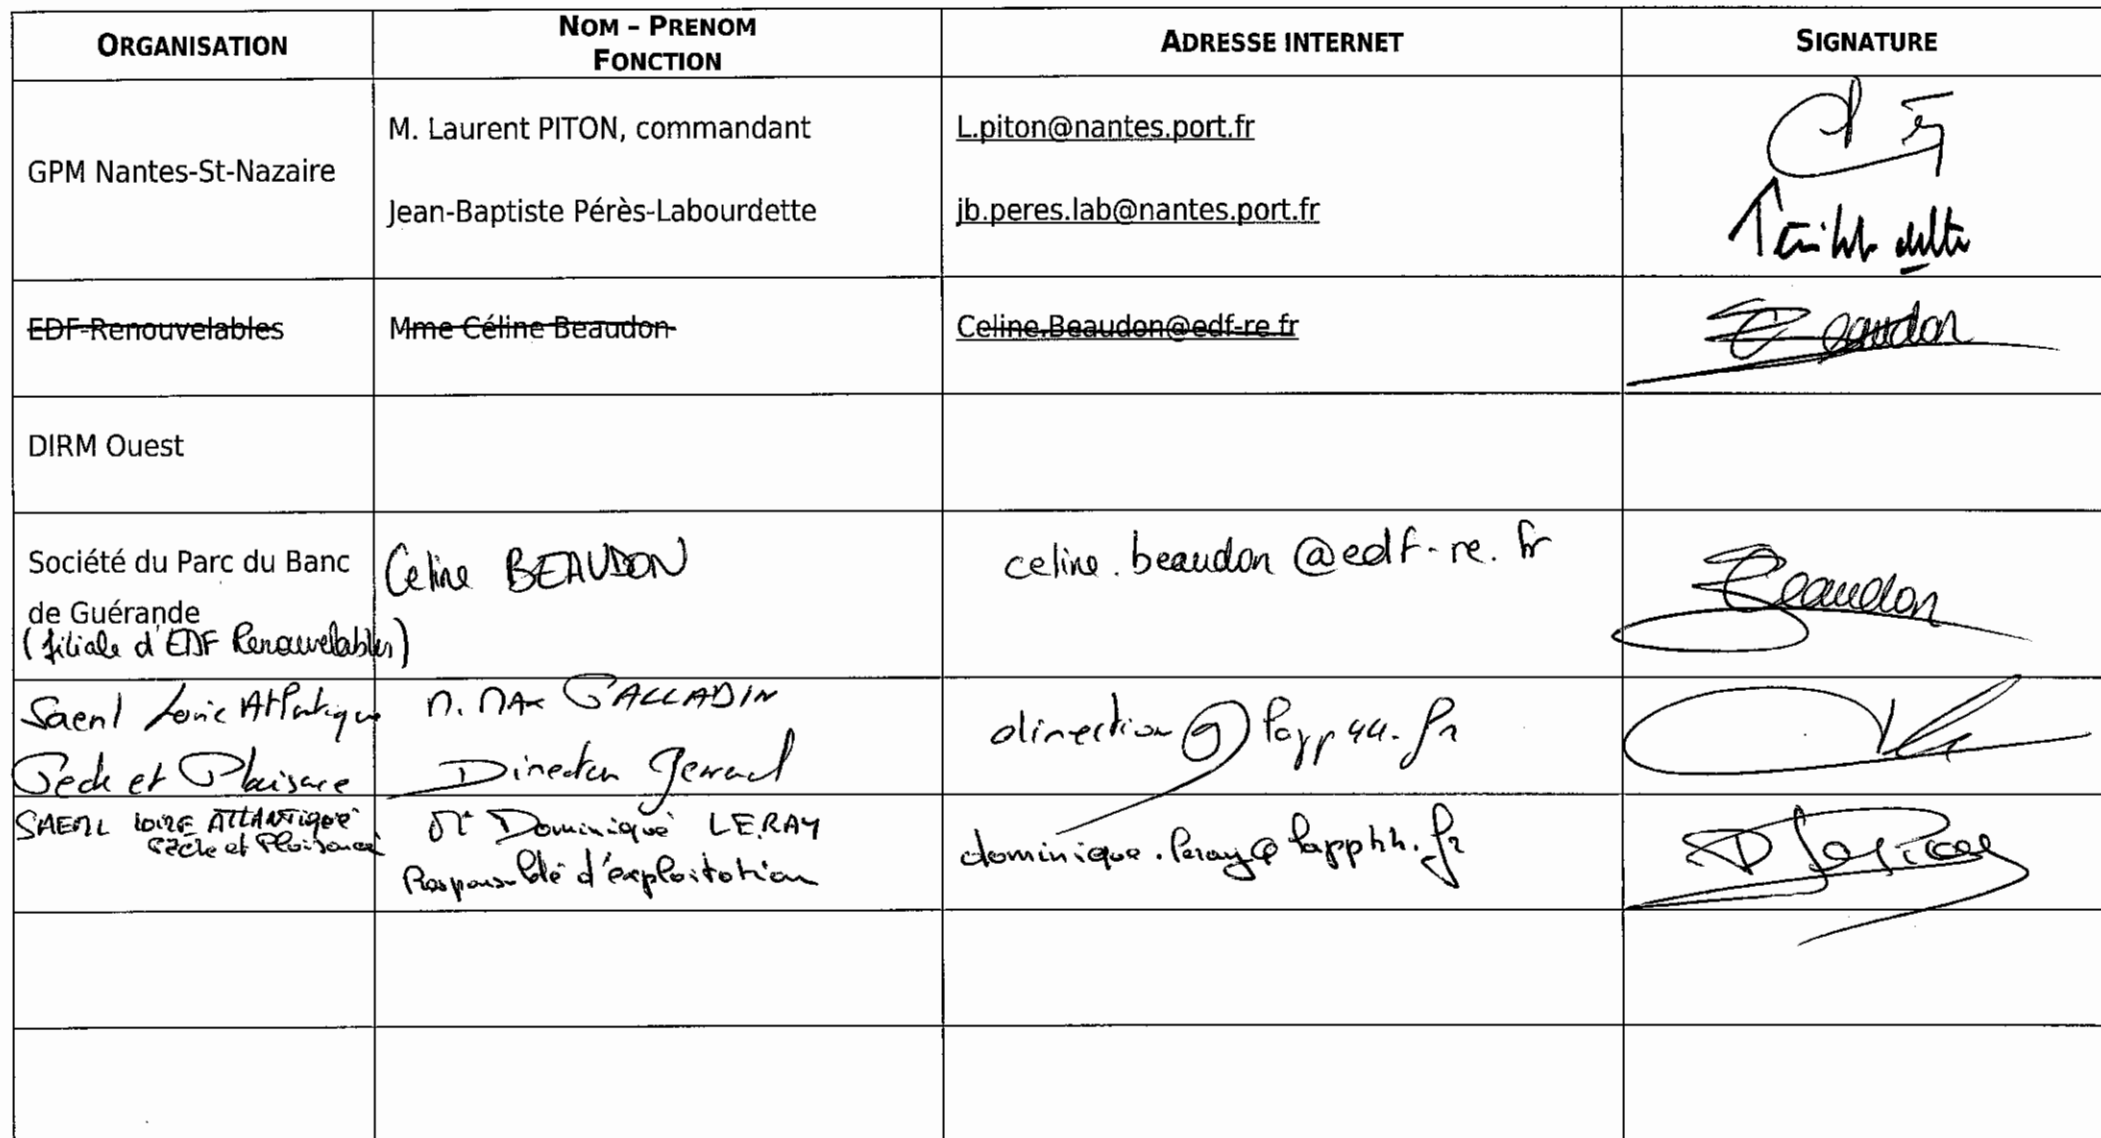 ORGANISATION
NOM – PRENOM
FONCTION
ADRESSE INTERNET
SIGNATURE
GPM Nantes-St-Nazaire
M. Laurent PITON, commandant
L.piton@nantes.port.fr
Jean-Baptiste Pérès-Labourdette
jb.peres.lab@nantes.port.fr
EDF-Renouvelables
Mme Céline Beaudon
Celine.Beaudon@edf-re.fr
Beaudon
DIRM Ouest
Société du Parc du Banc
de Guérande
(filiale d'EDF Renouvelables)
Celine BEAUDON
celine.beaudon@edf-re.fr
Beaudon
Saeml Loire Atlantique
Pêche et Plaisance
M. MAX PALLADIN
Directeur General
direction@lapp44.fr
SAEML LOIRE ATLANTIQUE
Pêche et Plaisance
Mr Dominique LERAY
Responsable d'exploitation
dominique.leray@lapp44.fr